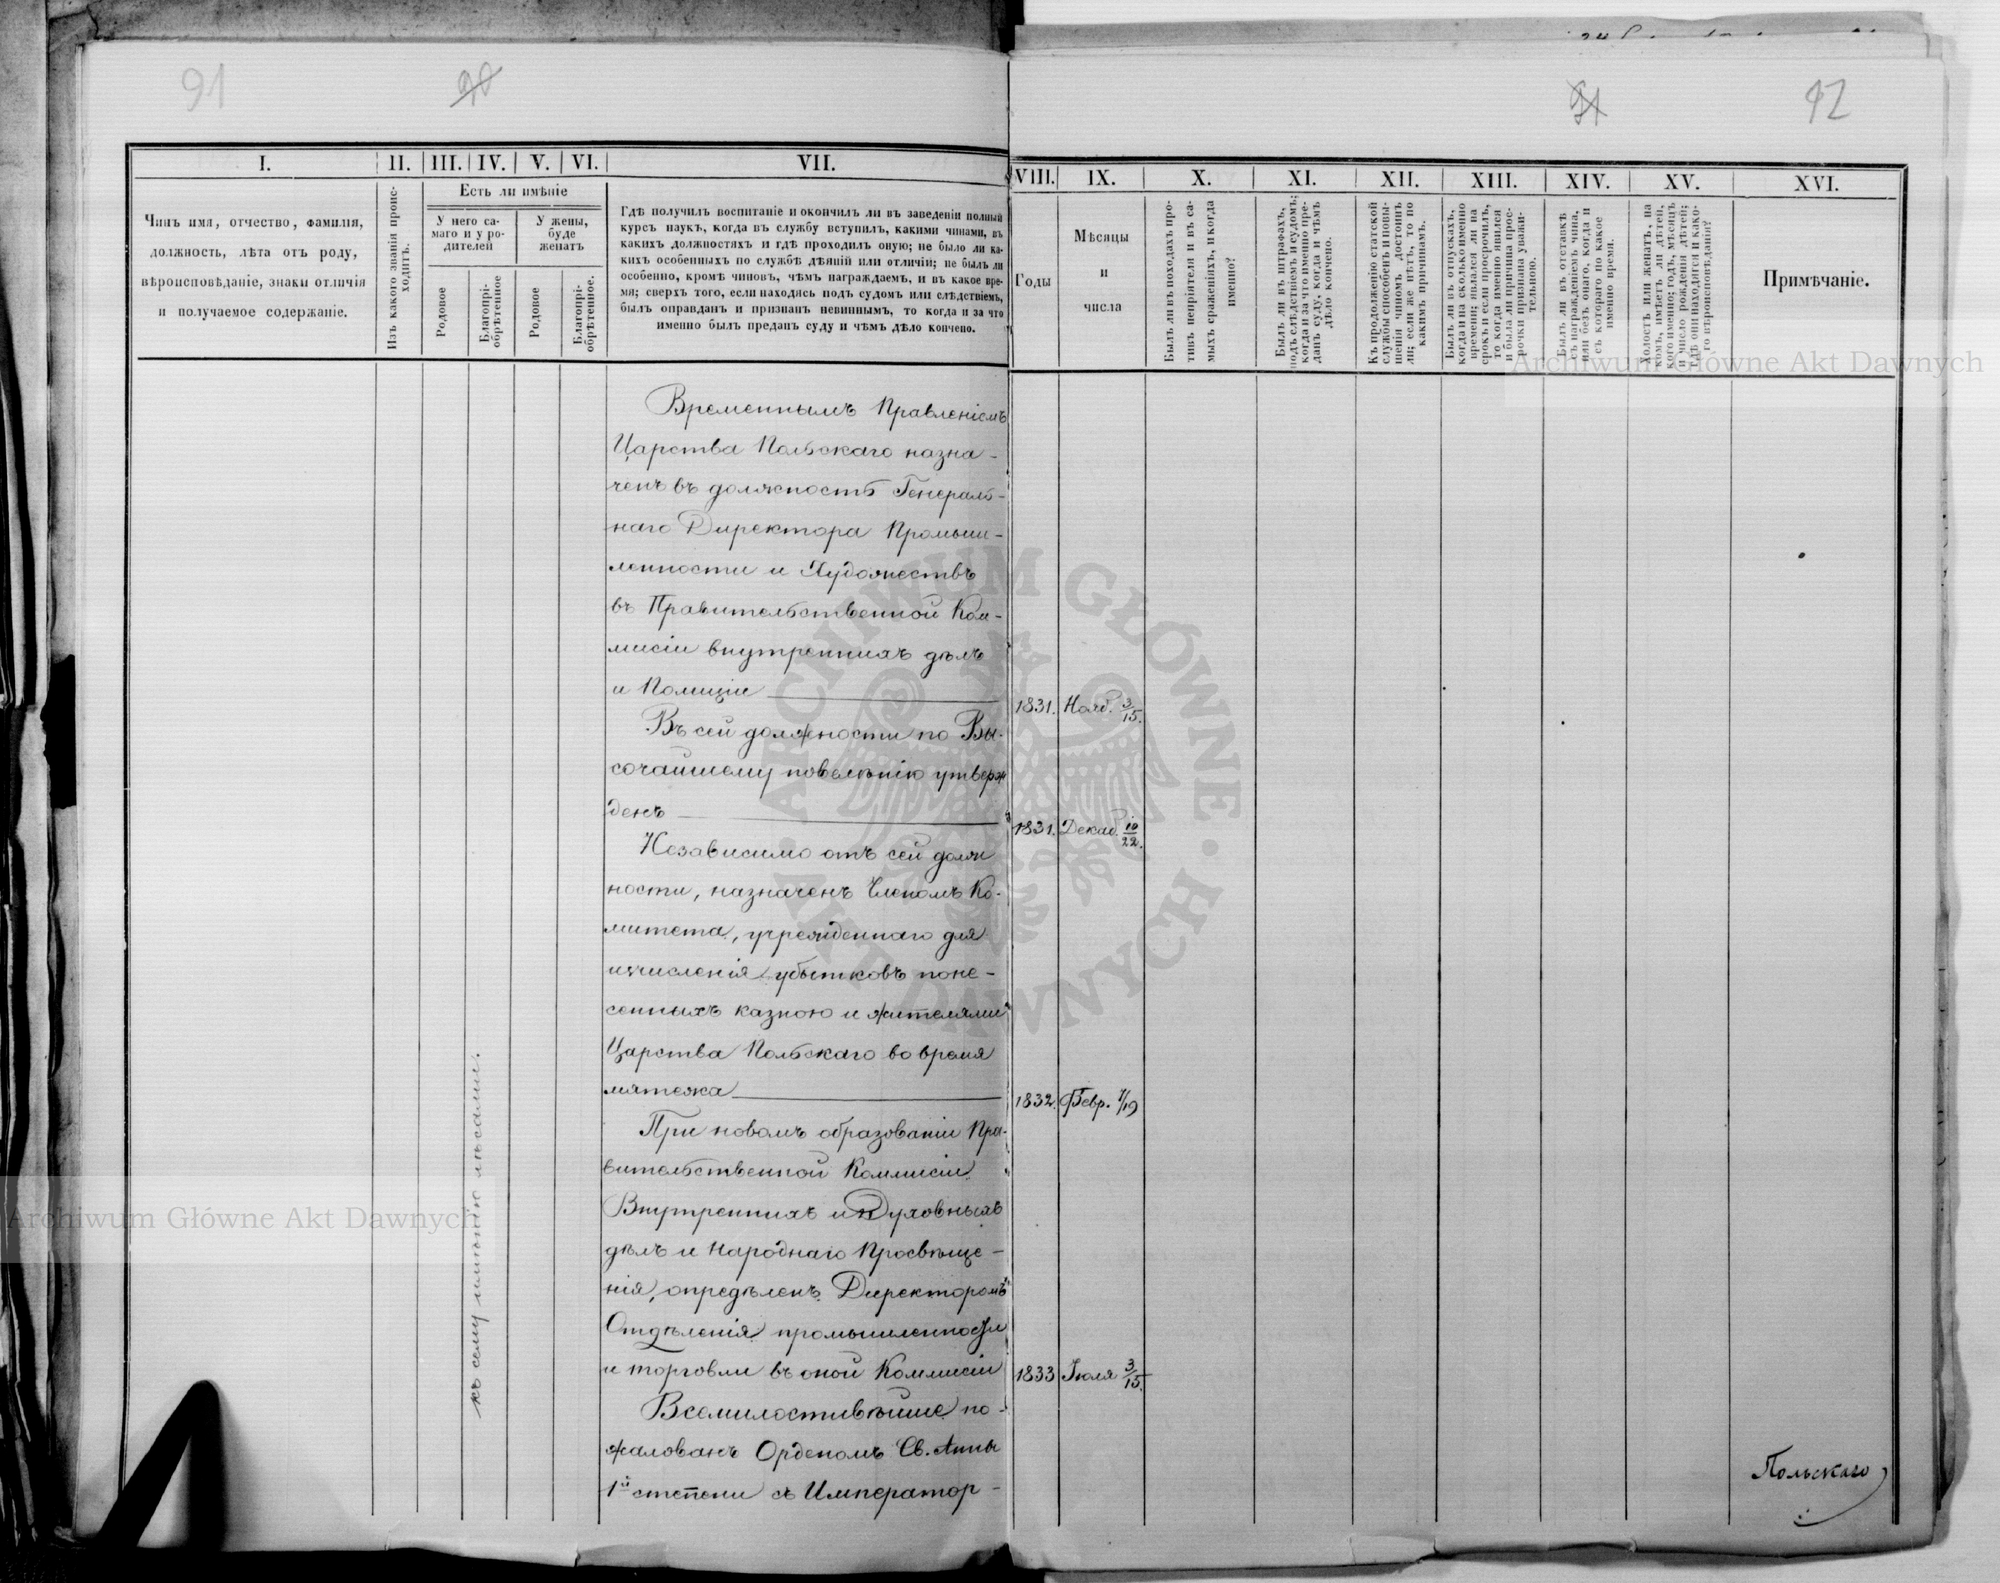 91
90
91
92
I.
II.
III.
IV.
V.
VI.
VII.
VIII.
IX.
X.
XI.
XII.
XIII.
XIV.
XV.
XVI.
Чинъ имя, отчество, фамилія,
должность, лѣта отъ роду,
вѣроисповѣданіе, знаки отличія
и получаемое содержаніе.
Изъ какого званія проис-
ходитъ.
Есть ли имѣніе
У него са-
маго и у ро-
дителей
У жены,
буде
женатъ
Родовое
Благопрі-
обрѣтенное
Родовое
Благопрі-
обрѣтенное.
Гдѣ получилъ воспитаніе и окончилъ ли въ заведеніи полный
курсъ наукъ, когда въ службу вступилъ, какими чинами, въ
какихъ должностяхъ и гдѣ проходилъ оную; не было ли ка-
кихъ особенныхъ по службѣ дѣяній или отличій; не былъ ли
особенно, кромѣ чиновъ, чѣмъ награждаемъ, и въ какое вре-
мя; сверхъ того, если находясь подъ судомъ или слѣдствіемъ,
былъ оправданъ и признанъ невиннымъ, то когда и за что
именно былъ преданъ суду и чѣмъ дѣло кончено.
Годы
Мѣсяцы
и
числа
Былъ ли въ походахъ про-
тивъ непріятеля и въ са-
мыхъ сраженіяхъ, и когда
именно?
Былъ ли въ штрафахъ,
подъ слѣдствіемъ и судомъ;
когда и за что именно пре-
данъ суду, когда и чѣмъ
дѣло кончено.
Къ продолженію статской
службы способенъ и повы-
шенія чиномъ достоинъ
ли; если же нѣтъ, то по
какимъ причинамъ.
Былъ ли въ отпускахъ,
когда и на сколько именно
времени; явился ли на
срокъ и если просрочилъ,
то когда именно явился
и была ли причина прос-
рочки признана уважи-
тельною.
Былъ ли въ отставкѣ
съ награжденіемъ чина,
или безъ онаго, когда и
съ котораго по какое
именно время.
Холостъ или женатъ, на
комъ, имѣетъ ли дѣтей,
кого именно; годъ, мѣсяцъ
и число рожденія дѣтей;
гдѣ они находятся и како-
го вѣроисповѣданія?
Примѣчаніе.
къ сему имѣнію лѣсами.
Временнымъ Правленіемъ
Царства Польскаго назна-
ченъ въ должность Генераль-
наго Директора Промыш-
ленности и Художествъ
въ Правительственной Ком-
мисіи внутреннихъ дѣлъ
и Полиціи
1831. Нояб. 3/15.
Въ сей должности по Вы-
сочайшему повелѣнію утверж
денъ
1831. Декаб. 10/22.
Независимо отъ сей долж
ности, назначенъ Членомъ Ко-
митета, учрежденнаго для
исчисленія убытковъ поне-
сенныхъ казною и жителями
Царства Польскаго во время
мятежа
1832. Февр. 7/19
При новомъ образованіи Пра-
вительственной Коммисіи
Внутреннихъ и Духовныхъ
дѣлъ и Народнаго Просвѣще-
нія, опредѣленъ Директоромъ
Отдѣленія промышленности
и торговли въ оной Коммисіи
1833 Іюля 3/15.
Всемилостивѣйше по-
жалованъ Орденомъ Св. Анны
1й степени съ Император-
Польскаго
Archiwum Główne Akt Dawnych
Archiwum Główne Akt Dawnych
ARCHIWUM GŁÓWNE AKT DAWNYCH